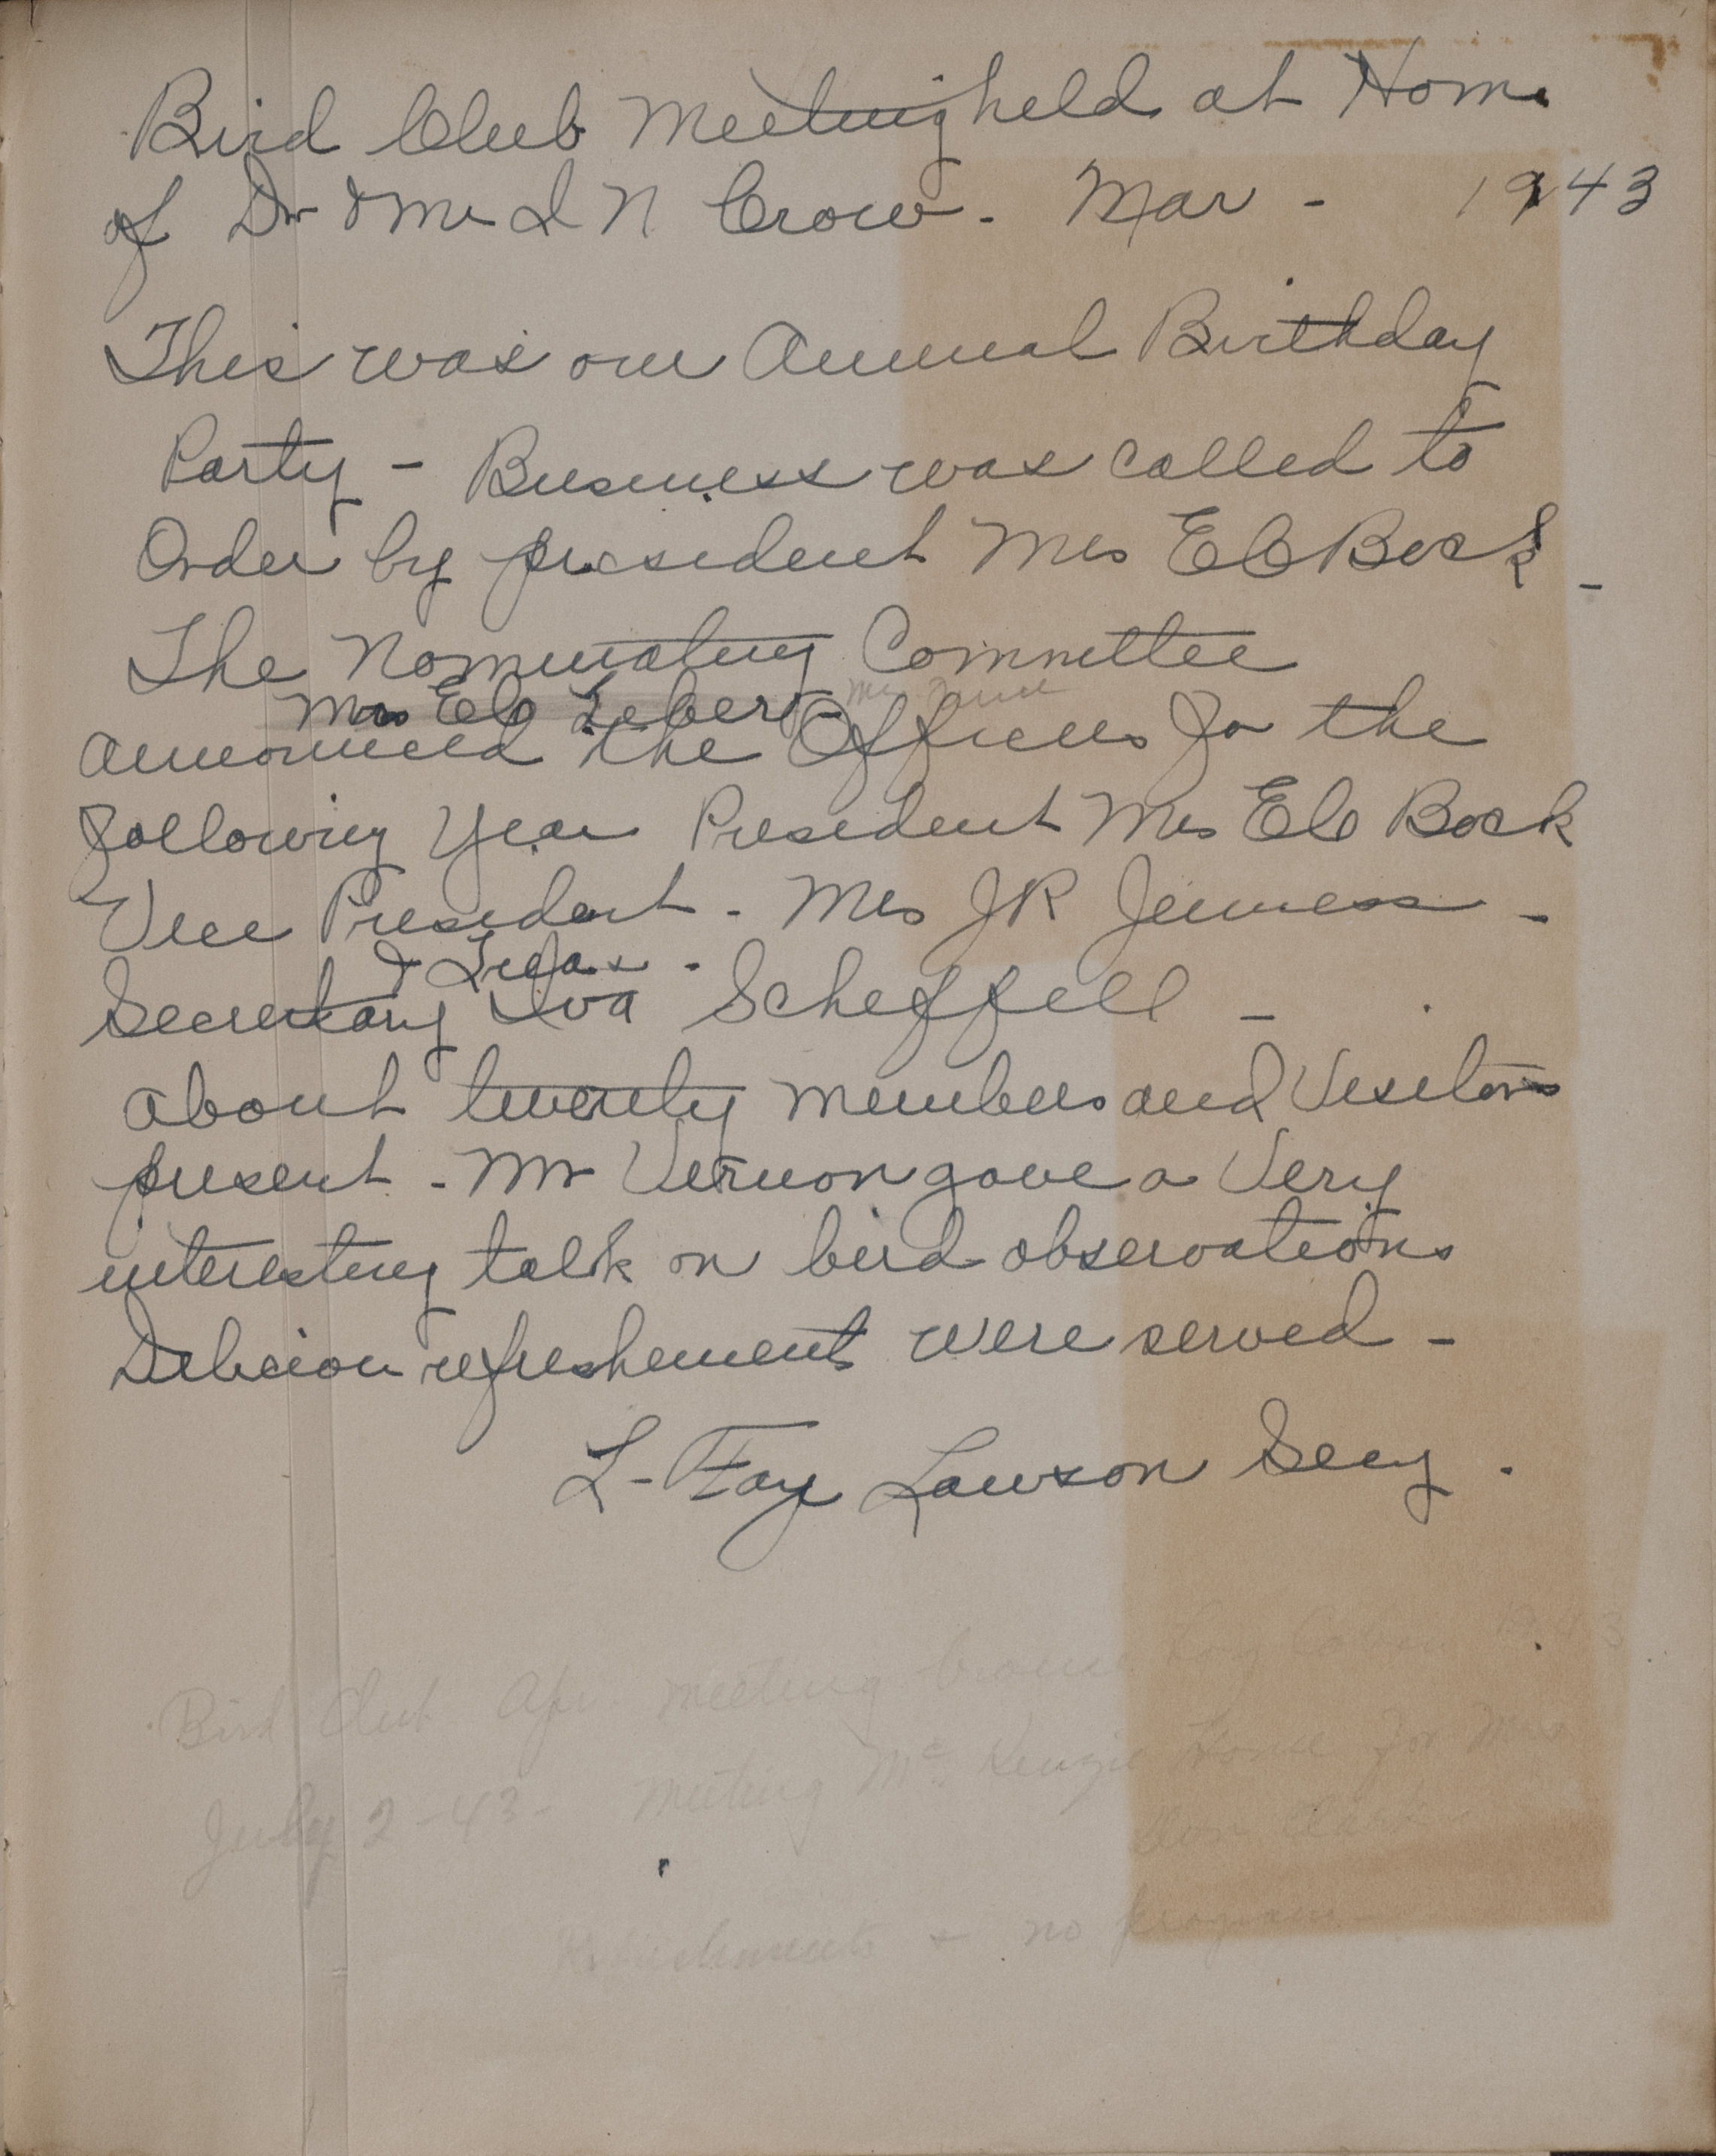 Bird Club Meeting held at Home
of Dr & Mrs I N Crow - Mar - 1943
This was our Annual Birthday
Party - Business was called to
Order by president Mrs Eb Bock -
The Nominating Committee
Mrs Eb Lebert -
announced the Officers for the
following Year President Mrs Eb Bock
Vice President - Mrs JR Jenness -
& Treas -
Secretary Iva Scheffell -
about twenty members and Visitors
present - Mr Vernon gave a Very
interesting talk on bird observations
Delicious refreshements were served -
L - Fay Lawson Secy .
Bird Club Apr. meeting
July 2 - 43 - Meeting Mc Kenzie Home for Mrs
Don Clark
Refreshments & no program